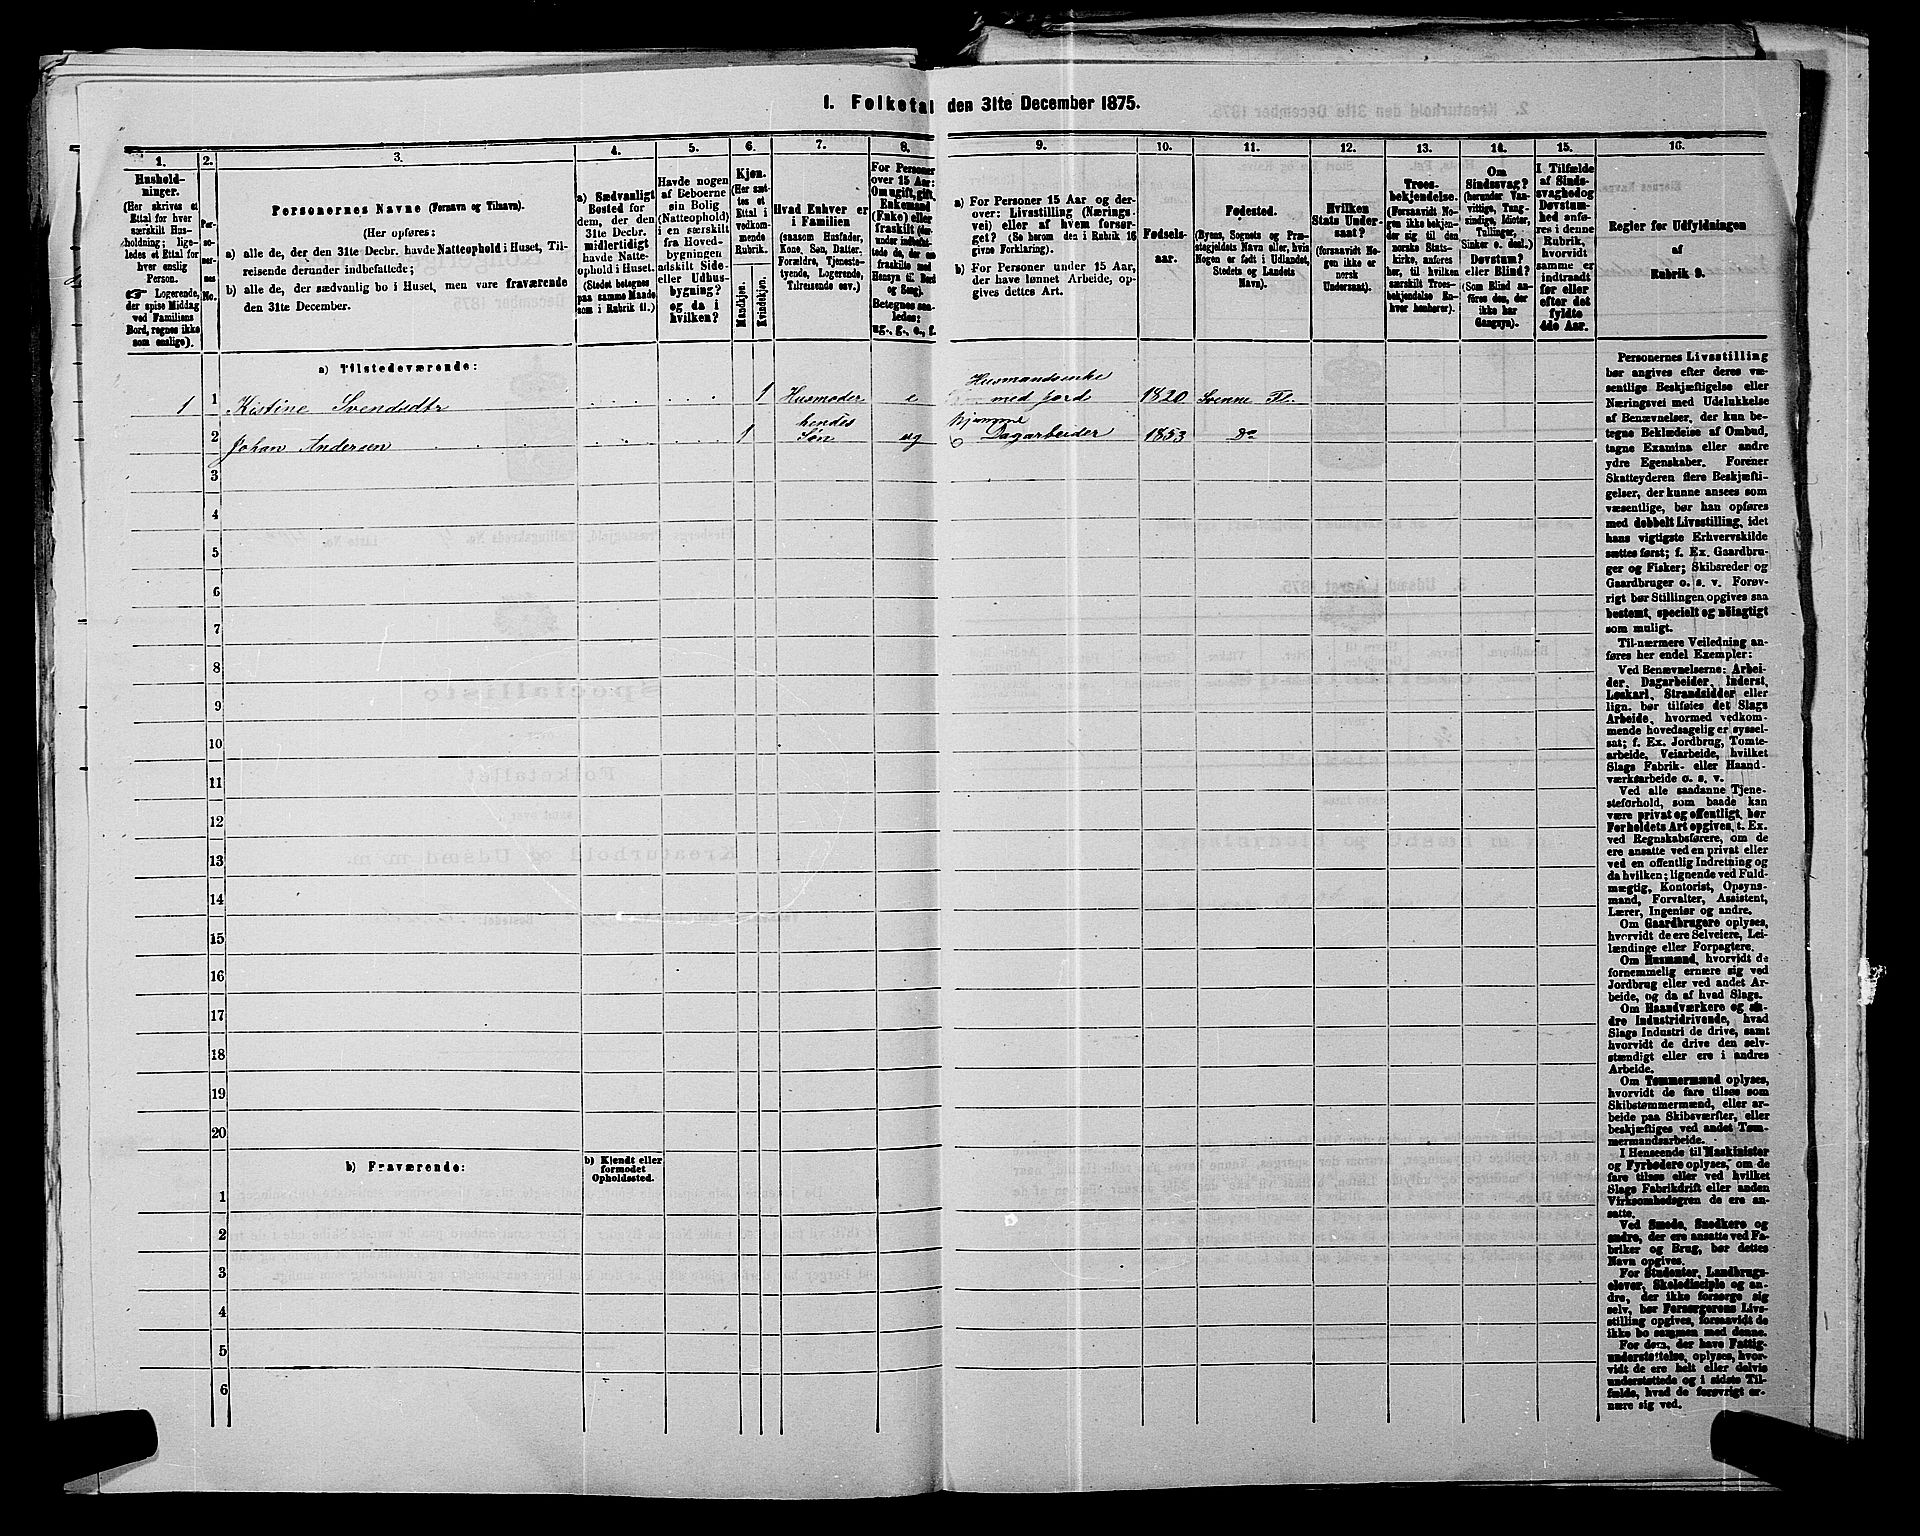 1. Folketal den 31te December 1875.
1.
2.
3.
4.
5.
6.
7.
8.
9.
10.
11.
12.
13.
14.
15.
16.
Hushold-
ninger.
(Her skrives et
Ettal for hver
særskilt Hus-
holdning; lige-
ledes et Ettal for
hver enslig
Person.
☞ Logerende,
der spise Middag
ved Familiens
Bord, regnes ikke
som enslige).
Per-
so-
ner-
nes
No.
Personernes Navne (Fornavn og Tilnavn).
(Her opføres:
a) alle de, der den 31te Decbr. havde Natteophold i Huset, Til-
reisende derunder indbefattede;
b) alle de, der sædvanlig bo i Huset, men vare fraværende
den 31te December.
a) Sædvanligt
Bosted for
dem, der den
31te Decbr.
midlertidigt
havde Natte-
ophold i Huset.
(Stedet betegnes
paa samme Maade
som i Rubrik 11.)
Havde nogen
af Beboerne
sin Bolig
(Natteophold)
i en særskilt
fra Hoved-
bygningen
adskilt Side-
eller Udhus-
bygning?
og da i
hvilken?
Kjøn.
(Her sæt-
tes et
Ettal i
vedkom-
mende
Rubrik.
Mandkjøn.
Kvindekjøn.
Hvad Enhver er
i Familien
(saasom Husfader,
Kone, Søn, Datter,
Forældre, Tjeneste-
tyende, Logerende,
Tilreisende osv.)
For Personer
over 15 Aar:
Om ugift, gift,
Enkemand
(Enke) eller
fraskilt
Betegnes saa-
ledes:
ug., g., e., f.
a) For Personer 15 Aar og der-
over: Livsstilling (Nærings-
vei) eller af hvem forsør-
get? (Se herom den i Rubrik 16
givne Forklaring).
b) For Personer under 15 Aar,
der have lønnet Arbeide, op-
gives dettes Art.
Fødsels-
aar.
Fødested.
(Byens, Sognets og Præ-
stegjeldets Navn eller, hvis
Nogen er født i Udlandet,
Stedets og Landets
Navn).
Hvilken
Stats Under-
saat?
(forsaavidt No-
gen ikke er
norsk
Undersaat).
Troes-
bekjendelse.
(Forsaavidt No-
gen ikke bekjen-
der sig til den
norske Stats-
kirke, anføres
her, til hvilken
særskilt Troes-
bekjendelse En-
hver henhører).
Om
Sindssvag?
(herunder Van-
vittige, Tung-
sindige, Idioter,
Tullinger,
Sinker o. desl.)
Døvstum?
eller Blind?
(Som Blind an-
føres den, der
ikke har
Gangsyn).
I Tilfælde
af Sinds-
svaghed og
Døvstum-
hed anfø-
res i denne
Rubrik,
hvorvidt
samme er
indtraadt
før eller
efter det
fyldte
4de Aar.
Regler for Udfyldningen
af
Rubrik 9.
a) Tilstedeværende:
1 1 Kistine Svendsdtr 1 Husmoder e Husmandsenke
med jord 1820 Svenne Fl.
2 Johan Andersen 1 hendes
Søn ug hjemme
Dagarbeider 1853 do
3
4
5
6
7
8
9
10
11
12
13
14
15
16
17
18
19
20
b) Fraværende:
b) Kjendt eller
formodet
Opholdssted.
1
2
3
4
5
6
Personernes Livsstilling
bør angives efter deres væ-
sentlige Beskjæftigelse eller
Næringsvei med Udelukkelse
af Benævnelser, der kun be-
tegne Beklædelse af Ombud,
tagne Examina eller andre
ydre Egenskaber. Forener
Skatteyderen flere Beskjæfti-
gelser, der kunne ansees som
væsentlige, bør han opføres
med dobbelt Livsstilling, idet
hans vigtigste Erhvervskilde
sættes først; f. Ex. Gaardbru-
ger og Fisker; Skibsreder og
Gaardbruger o. s. v. Forøv-
rigt bør Stillingen opgives saa
bestemt, specielt og nöiagtigt
som muligt.
Til nærmere Veiledning an-
føres her endel Exempler:
Ved Benævnelserne: Arbei-
der, Dagarbeider, Inderst,
Løskarl, Strandsidder eller
lign. bør tilføies det Slags
Arbeide, hvormed vedkom-
mende hovedsagelig er syssel-
sat; f. Ex. Jordbrug, Tomte-
arbeide, Veiarbeide, hvilket
Slags Fabrik- eller Haand-
værksarbeide o. s. v.
Ved alle saadanne Tjene-
steforhold, som baade kan
være privat og offentligt, bør
Forholdets Art opgives, t. Ex.
ved Regnskabsførere, om de
ere ansatte ved en privat eller
ved en offentlig Indretning og
da hvilken; lignende ved Fuld-
mægtig, Kontorist, Opsyns-
mand, Forvalter, Assistent,
Lærer, Ingeniør og andre.
Om Gaardbrugere oplyses,
hvorvidt de ere Selveiere, Lei-
lændinge eller Forpagtere.
Om Husmænd, hvorvidt de
fornemmelig ernære sig ved
Jordbrug eller ved andet Ar-
beide, og da af hvad Slags.
Om Haandværkere og an-
dre Industridrivende, hvad
Slags Industri de drive, samt
hvorvidt de drive den selv-
stændigt eller ere i andres
Arbeide.
Om Tømmermænd oplyses,
hvorvidt de fare tilsøs som
Skibstømmermænd, eller ar-
beide paa Skibsværfter, eller
beskjæftiges ved andet Tøm-
mermandsarbeide.
I Henseende til Maskinister
og Fyrbødere oplyses, om de
fare tilsøs eller ved hvilket
Slags Fabrikdrift eller anden
Virksomhedsgren de ere an-
satte.
Ved Smede, Snedkere og
andre, der ere ansatte ved Fa-
briker og Brug, bør dettes
Navn opgives.
For Studenter, Landbrugs-
elever, Skoledisciple og an-
dre, der ikke forsørge sig
selv, bør Forsørgerens Livs-
stilling opgives, forsaavidt de
ikke bo sammen med denne.
For dem, der have Fattig-
understøttelse, oplyses, hvor-
vidt de ere helt eller delvis
understøttede og i sidste Til-
fælde, hvad de forøvrigt er-
nære sig ved.